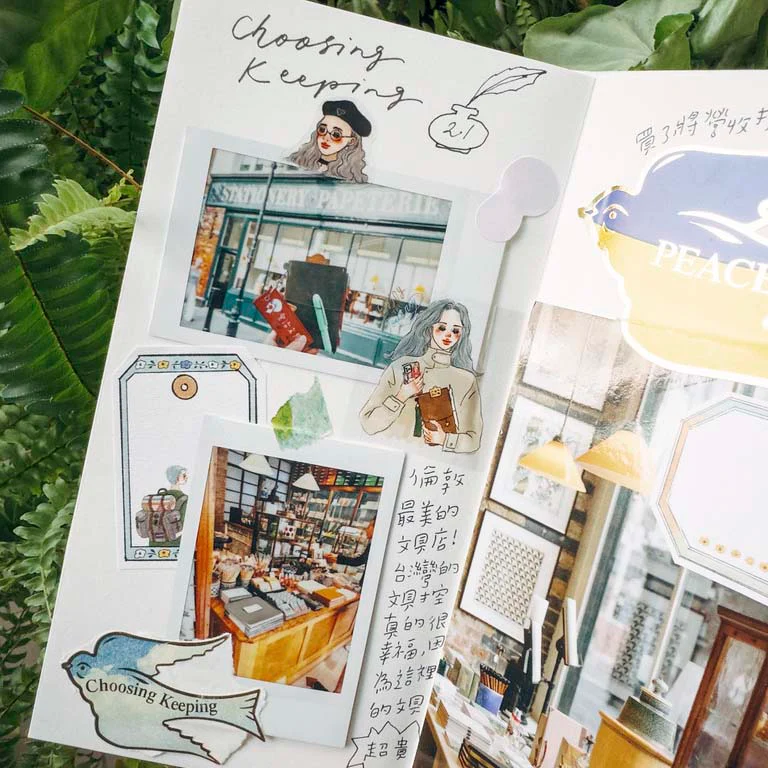 Choosing
Keeping
2.1
STATIONERY PAPETERIE
倫敦
最美的
文具店!
台灣的
文具控
真的很
幸福,因
為這裡
的文具
超貴
Choosing Keeping
買了將營收
PEACE